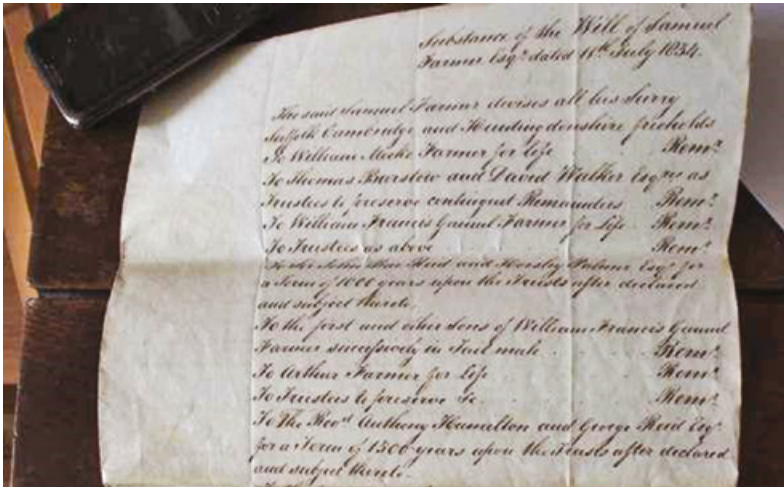 Substance of the Will of Samuel
Farmer Esqr. dated 11th July 1834.
The said Samuel Farmer devises all his Surry
Suffolk Cambridge and Huntingdonshire freeholds
To William Meeke Farmer for life . . Remr.
To Thomas Barstow and David Walker Esqrs as
Trustees to preserve contingent Remainders . Remr.
To William Francis Gamul Farmer for Life . Remr.
To Trustees as above . . . Remr.
Reid and Horsley Palmer Esqr. for
a Term of 1000 years upon the Trusts after declared
and subject thereto.
To the first and other sons of William Francis Gamul
Farmer successively in Tail male . . . Remr.
To Arthur Farmer for Life . . Remr.
To Trustees to preserve &c. . . . Remr.
To The Revd. Anthony Hamilton and George Reid Esqr.
for a Term of 1500 years upon the Trusts after declared
and subject thereto.